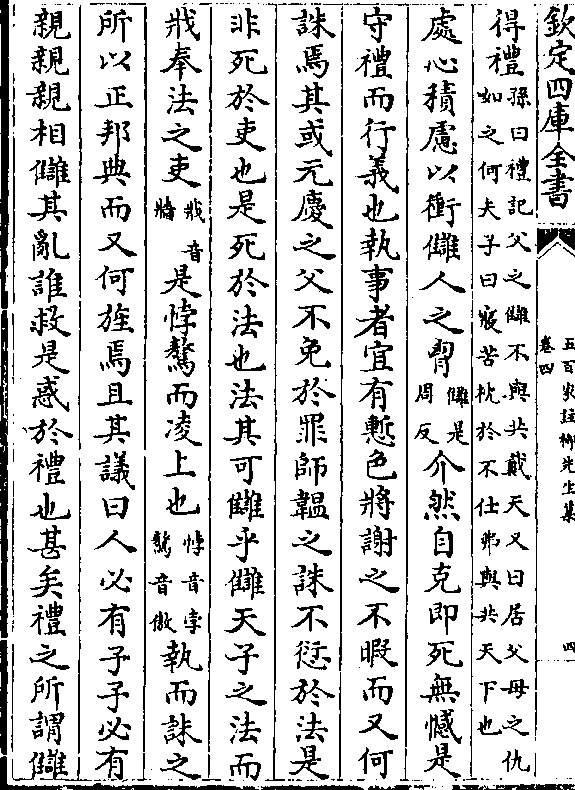 欽定四庫全書
五百家註柳先生集
卷四
四
得禮孫曰禮記父之讎不與共戴天又曰居父母之仇如之何夫子曰寢苦枕於不仕弗與共天下也
處心積慮以衝讎人之胷讎是周反介然自克即死無憾是
守禮而行義也執事者宜有慙色將謝之不暇而又何
誅焉其或元慶之父不免於罪師韞之誅不愆於法是
非死於吏也是死於法也法其可讎乎讎天子之法而
戕奉法之吏戕音牆是悖驁而凌上也悖音孛驁音傲執而誅之
所以正邦典而又何旌焉且其議曰人必有子子必有
親親親相讎其亂誰救是惑於禮也甚矣禮之所謂讎